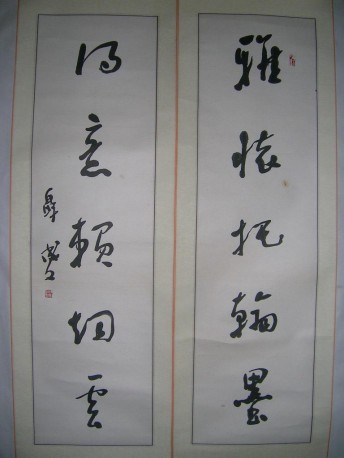 雅懷托翰墨
得意賴烟雲